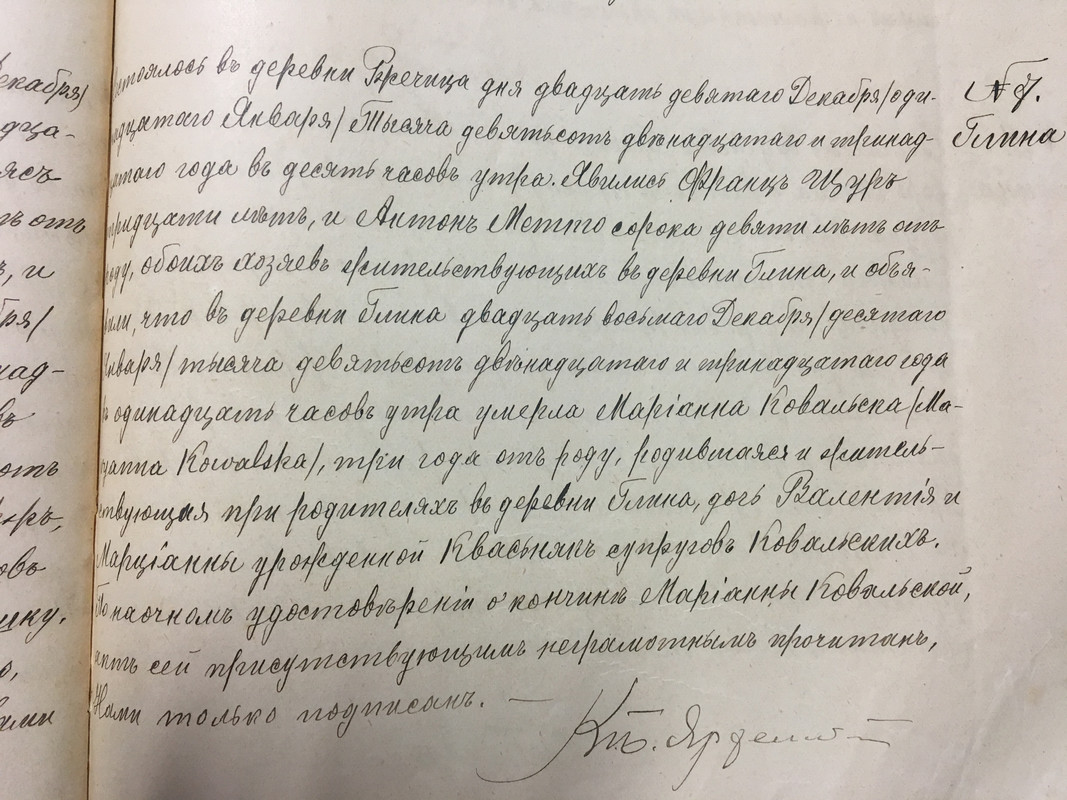 стоялось въ деревни Вречица дня двадцать девятаго Декабря/оди-
надцатаго Января/ Тысяча девятьсотъ двѣнадцатаго и тринад-
цатаго года въ десять часовъ утра. Явились Францъ Щуръ
тридцати лѣтъ, и Антонъ Метто сорока девяти лѣтъ отъ
роду, обоихъ хозяевъ жительствующихъ въ деревни Глина, и объя-
вили, что въ деревни Глина двадцать восьмаго Декабря/десятаго
Января/ тысяча девятьсотъ двѣнадцатаго и тринадцатаго года
въ одинадцать часовъ утра умерла Маріанна Ковальска/Ma-
ryanna Kowalska/, три года отъ роду, родившаяся и житель-
ствующая при родителяхъ въ деревни Глина, дочь Валентія и
Марціанны урожденной Квасьнякъ супруговъ Ковальскихъ.
По наочномъ удостовѣреніи о кончинѣ Маріанны Ковальской,
актъ сей присутствующимъ неграмотнымъ прочитанъ,
Нами только подписанъ. —
Кс.
№7.
Глина
Декабря/
дца-
ясъ
ть отъ
ъ, и
бря/
над-
въ
отъ
овъ